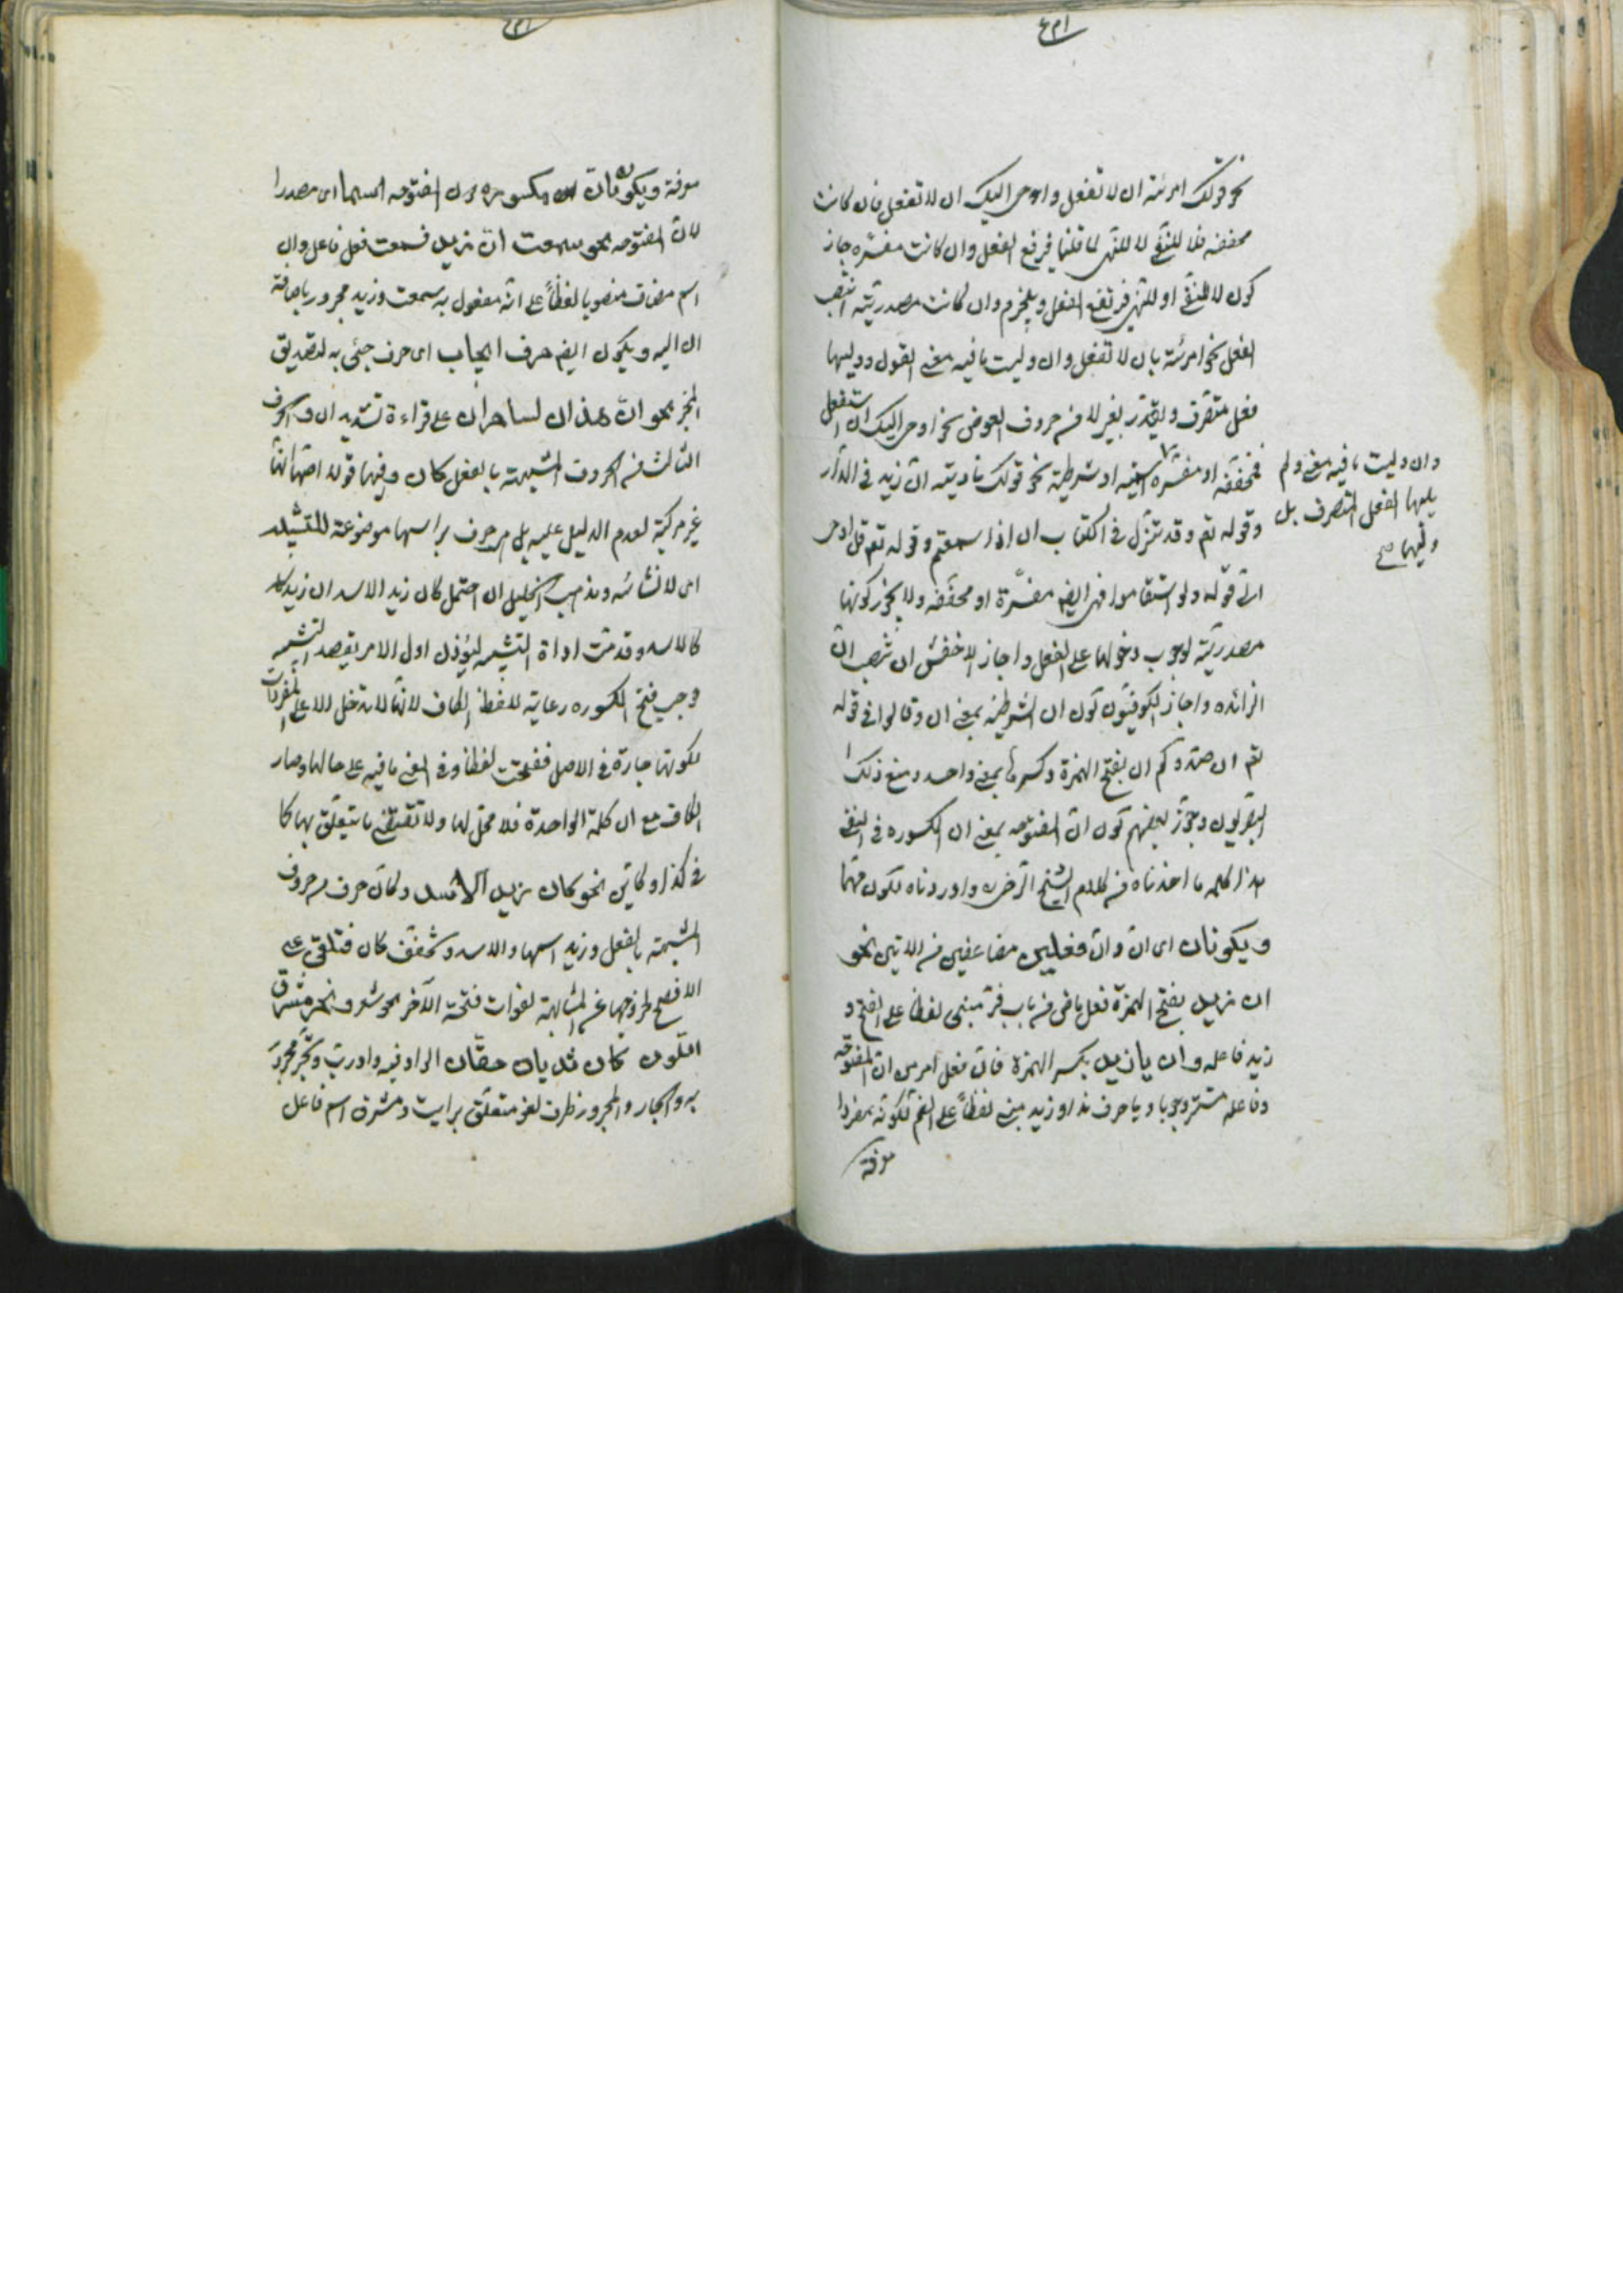 نحو قولك امرته ان لا تفعل واوحى اليك ان لا تفعل فان كانت
مخففه فلا للنفى لا للنهى لما قلنا فيرفع الفعل وان كانت مفسّره جاز
كون لا للنفى او للنهى فيرتفع الفعل وينجزم وان كانت مصدريّة انتصب
الفعل نحو امرته بان لا تفعل وان وليت ما فيه معنى القول ووليها
فعل متصرّف ويقدّر بغير لا من حروف العوض نحو اوحى اليك ان ستفعل
فمخففه او مفسّره
اسمية او شرطية نحو قولك ناديته ان زيد فى الدار
وقوله تعم وقد نزّل فى الكتاب ان اذا سمعتم وقوله تعم قل اوحى
الىّ قوله ولو استقاموا فهى ايضم مفسّرة او مخففه ولا يجوز كونها
مصدريّة لوجوب دخولها على الفعل واجاز الاخفش ان تنصب ان
الزائده واجاز الكوفيّون كون ان الشرطيّه بمعنى ان وقالوا فى قوله
تعم ان صدّوكم ان بفتح الهمزة وكسرها بمعنى واحد ومنع ذلك
البصريون وجوّز بعضهم كون ان المفتوحه بمعنى ان المكسوره فى النفى
هذا كله ما اخذناه من كلام الشيخ الرضى واوردناه لكون مهمّا
ويكونان اى انّ وانّ فعلين مضاعفين من الانين نحو
ان زيد بفتح الهمزة فعل ماض من باب فرّ مبنى لفظا على الفتح و
زيد فاعله وان يا زيد بكسر الهمزة فانّ فعل امر من ان المفتوحه
وفاعله مستتر وجوبا ويا حرف ندا وزيد مبنى لفظاً على الضم لكونه مفردا
معرفة
وان وليت ما فيه معنى ولم
يليها الفعل المتصرف بل
وليها صح
معرفة ويكونان
المفتوحه اسما اى مصدرا
لان المفتوحه نحو سمعت ان زيد فسمعت فعل فاعل وان
اسم مضاف منصوبا لفظاً على انه مفعول به سمعت وزيد مجرور باضافة
ان اليه ويكون ايضم حرف ايجاب اى حرف جيئ به لتصديق
المخبر نحو انّ هذان لساحران على قراءة تشديد ان والحرف
الثالث من الحروف المشبهة بالفعل كان وفيها قولا اصحهما انّها
غير مركبة لعدم الدليل عليه بل حرف براسها موضوعة للتشبيه
اى لانشائه ومذهب الخليل ان اصل كان زيد الاسد ان زيد
كالاسد وقدمت اداة التشبيه ليؤذن اول الامر بقصد التشبيه
وجب فتح المكسوره رعاية للفظ الكاف لانها لا تدخل الا على المفردات
لكونها جارة فى الاصل ففتحت لفظا وفى المعنى باقيه على حالها وصار
الكاف مع ان كلمة الواحدة فلا محل لها ولا تقتضى ما يتعلّق بها كما
فى كذا وكايّن نحو كان زيد الاسد وكانّ حرف من حروف
المشبهة بالفعل وزيد اسمها والاسد وتخفف كان فتلغى على
الافصح لخروجها عن المشابهة لفوات فتحة الآخر نحو شعر ونحر مشرق
اللون كان ثدياه حقّان الواو فيه واو ربّ ونحر مجرور
به والجار والمجرور ظرف لغو متعلّق برايت ومشرق اسم فاعل